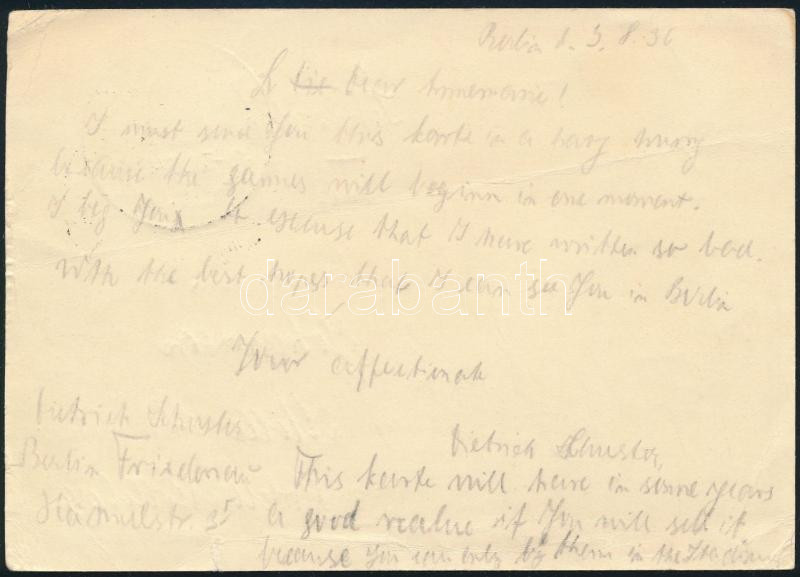 Berlin d. 3. 8. 36
L die Dear Annemarie!
I must send You this karte in a havy hurry
because the games will beginn in one moment.
I beg You to excuse that I have written so bad.
With the best hopes that I can see You in Berlin
darabanth
Your affectionate
Dietrich Schuster
Dietrich Schuster
Berlin Friedenau
This karte will have in some years
a good vealue if You will sell it
because You can only by them in the Stadium